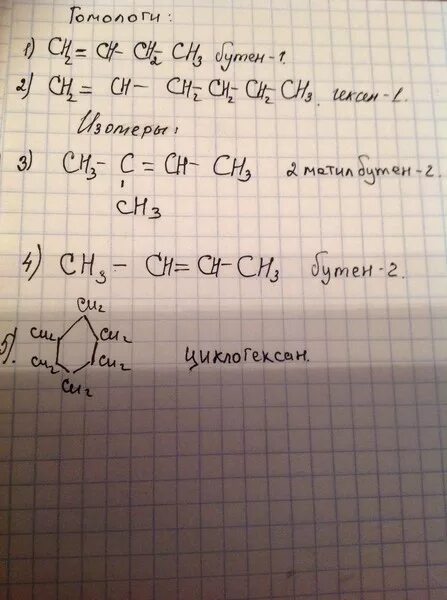 Гомологи:
1) CH2 = CH - CH2 - CH3 бутен-1.
2) CH2 = CH - CH2 - CH2 - CH2 - CH3. гексен-1.
Изомеры:
3) CH3 - C = CH - CH3 2 метилбутен-2.
CH3
4) CH3 - CH = CH - CH3 бутен-2.
CH2
CH2 CH2
5). CH2 CH2 циклогексан.
CH2